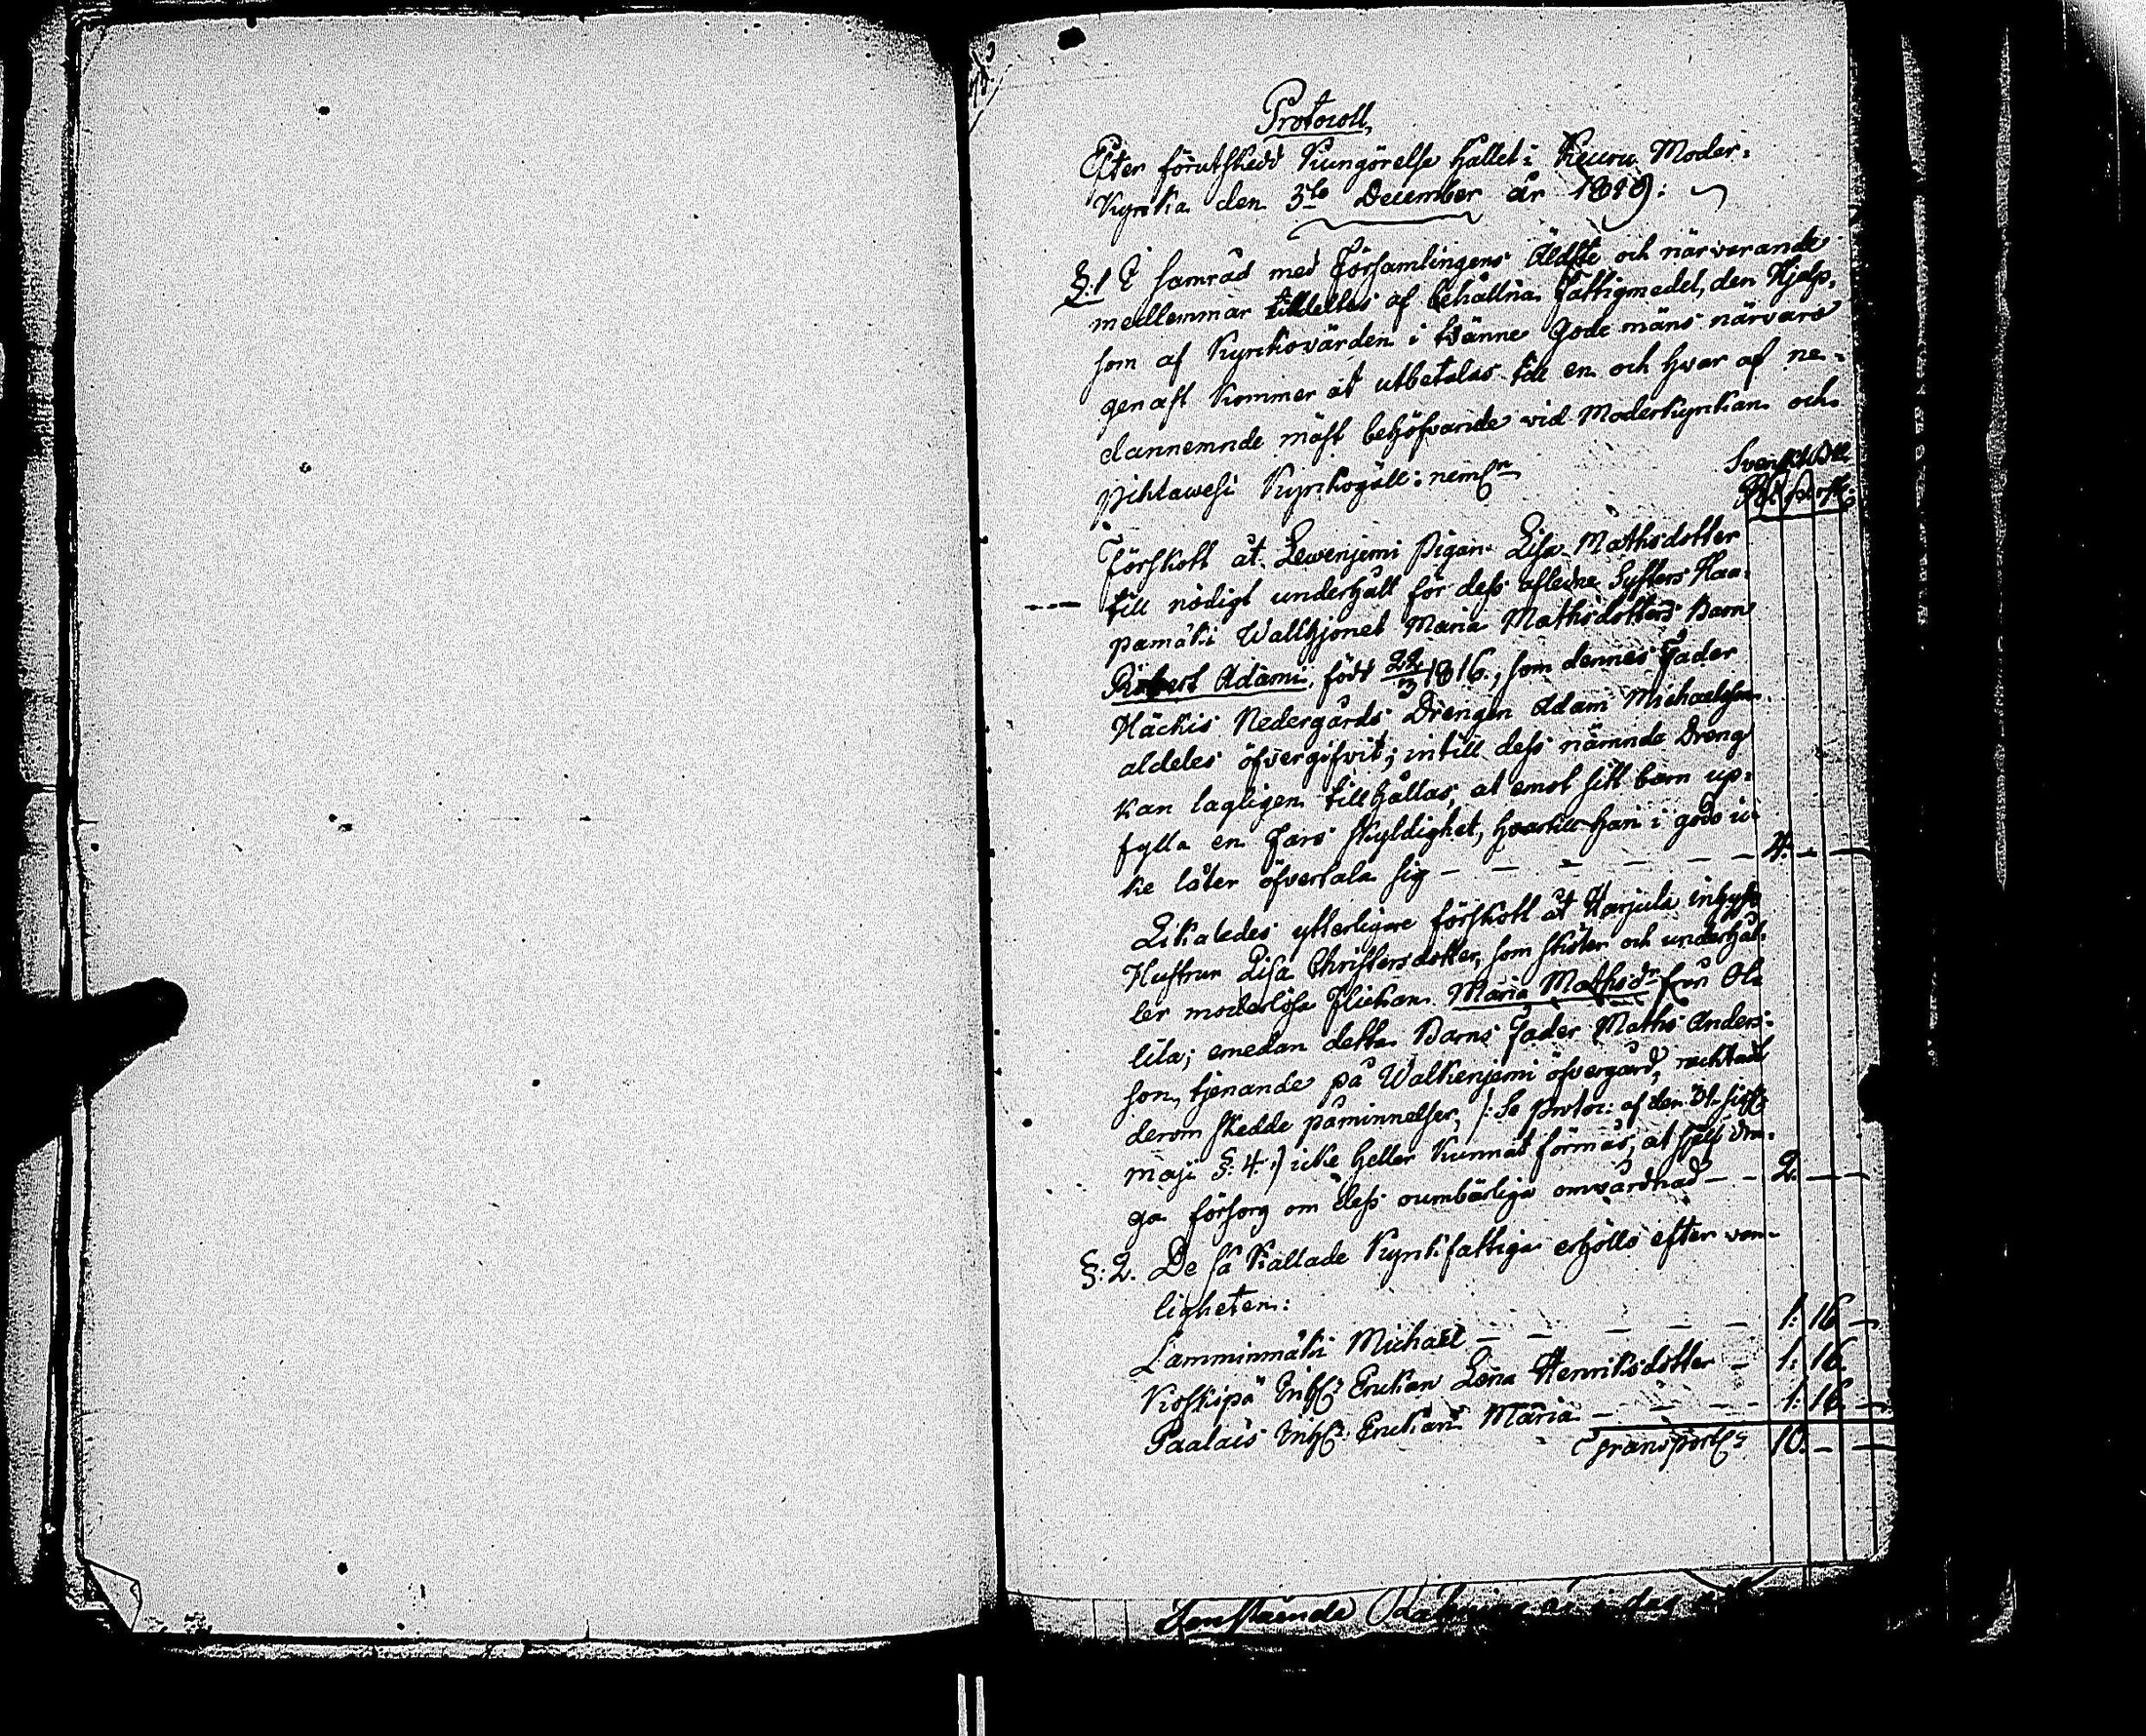 Protocoll,
Efter förutskedd Kungörelse hallet i Keuru Moder-
Kyrka den 3de December år 1819.
§.1 I samråd med Församlingens Äldste och närvarande
medlemmar tilldeltes af behållna Fattigmedel, den Hjelp,
som af Kyrkovärden i tvänne Gode mäns närvaro
genast kommer at utbetalas till en och hvar af ne-
dannemnde mäst behöfvande vid Moderkyrkan och
Pihlawesi Kyrkogäll: neml:n
Förskott åt Lewenjemi Pigan Lisa Mathsdotter
till nödigt underhåll för dess aflidne Systers Haa-
pamäki Wallhjonet Maria Mathsdotters Barn
Robert Adami, född 22/3 1816, som dennes Fader
Häckis Nedergårds Drengen Adam Michaelsson
aldeles öfvergifvit; intill dess nämnde Dreng
kan lagligen tillhållas, at emot sitt barn up-
fylla en Fars skyldighet, hvartill han i godo ic-
ke låter öfvertala sig — — — — — 4. — —
Likaledes ytterligare förskott åt Harjula inhyses
Hustrun Lisa Christersdotter, som sköter och underhål-
ler moderlösa Flickan Maria Mathsdr från Ala
lila; emedan detta Barns Fader Maths Anders-
son, tjenande på Walkenjemi öfvergård, oachtadt
derom skedde påminnelser, /: Se Protoc: af den
maji §: 4 :/ icke heller kunnat förmås, at sjelf dra-
ga försorg om dess oumbärliga omvårdnad — — 2. — —
§: 2. De så kallade Kyrkifattiga erhöllo efter van-
ligheten:
Lamminmäki Michaël — — — — — 1: 16 —
Koskipä Inhs Enckan Lena Henriksdotter — 1: 16.
Paalais Inhs: Enckan Maria — — — — 1: 16 —
Transport 10. — —